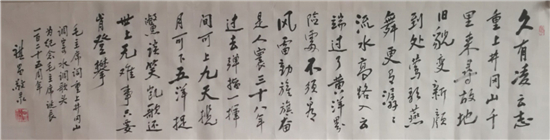 久有凌云志
重上井冈山千
里来寻故地
旧貌变新颜
到处莺歌燕
舞更有潺潺
流水高路入云
端过了黄洋界
险处不须看
风雷动旌旗奋
是人寰三十八年
过去弹指一挥
间可上九天揽
月可下五洋捉
鳖谈笑凯歌还
世上无难事只要
肯登攀
毛主席词重上井冈山
调寄水调歌头
为纪念毛主席诞辰
一百二十五周年